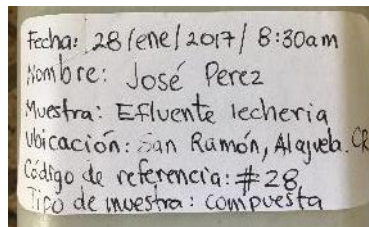 Fecha: 28/ene/2017/ 8:30am
Nombre: José Perez
Muestra: Efluente lecheria
Ubicación: San Ramón, Alajuela. CR
Código de referencia: #28
Tipo de muestra: compuesta